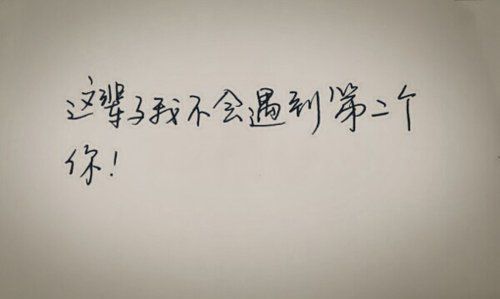 这辈子我不会遇到第二个
你！